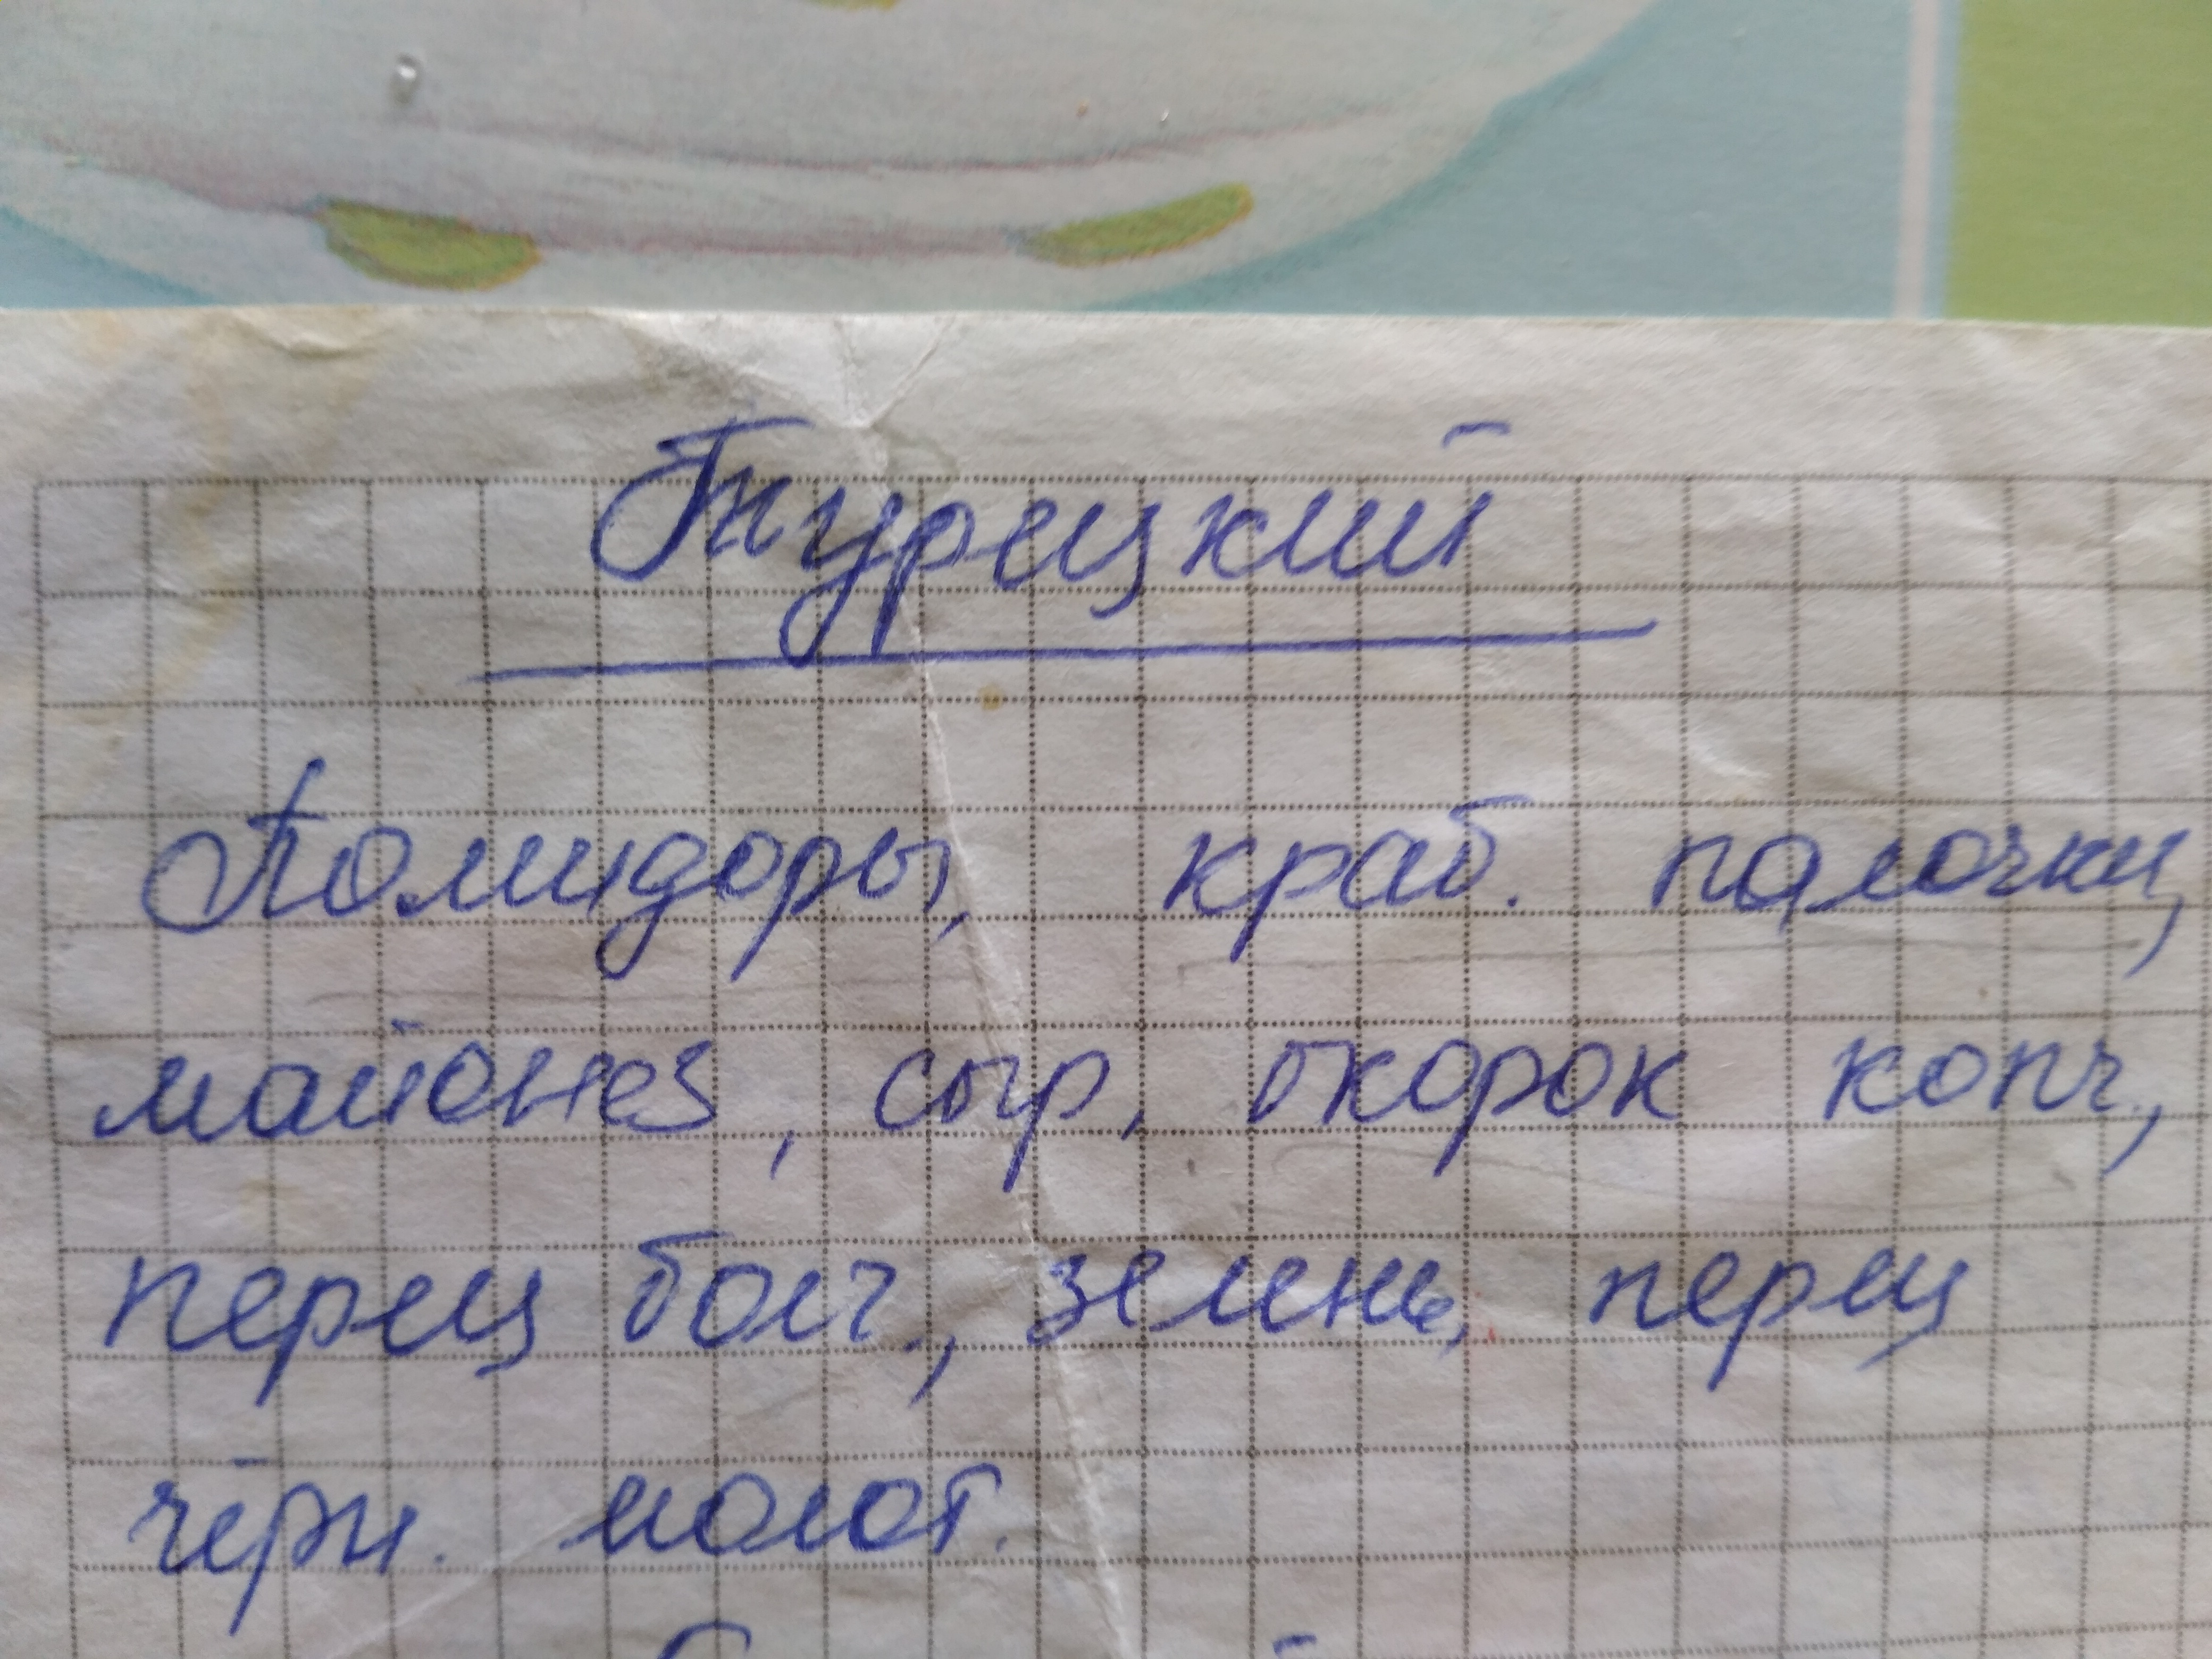 Турецкий
Помидоры, краб. палочки,
майонез, сыр, окорок копч.,
перец болг., зелень, перец
чёрн. молот.